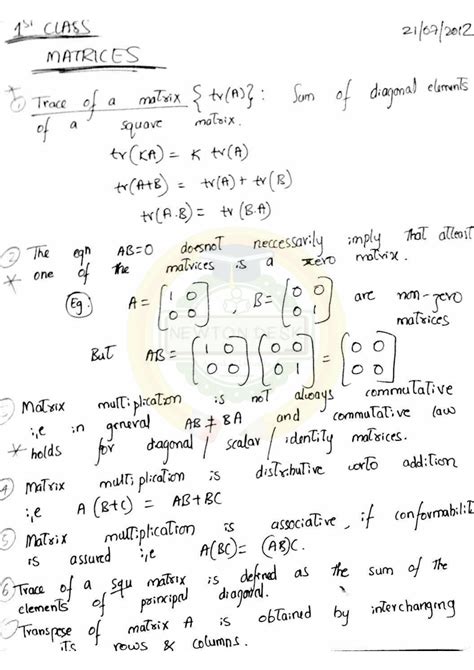 1st CLASS
21/07/2012
MATRICES
① Trace of a matrix {tr(A)} : Sum of diagonal elements
of a square matrix.
tr(KA) = K tr(A)
tr(A+B) = tr(A) + tr(B)
tr(A.B) = tr(B.A)
② The eqn AB=0 doesnot neccessarily imply that atleast
* one of the matrices is a zero matrix.
Eg: A = [1 0 , B = [0 0 are non-zero
0 0] 0 1] matrices
NEWTON DESK
But AB = [1 0 [0 0 = [0 0
0 0] 0 1] 0 0]
Matrix multiplication is not always commutative
i,e in general AB ≠ BA and commutative law
* holds for diagonal / scalar / identity matrices.
4 Matrix multiplication is distributive w.r.to addition
i,e A(B+C) = AB+BC
⑤ Matrix multiplication is associative, if conformabilit
is assured i,e A(BC) = (AB)C.
⑥ Trace of a squ matrix is defined as the sum of the
elements of principal diagonal.
Transpose of matrix A is obtained by interchanging
its rows & columns.